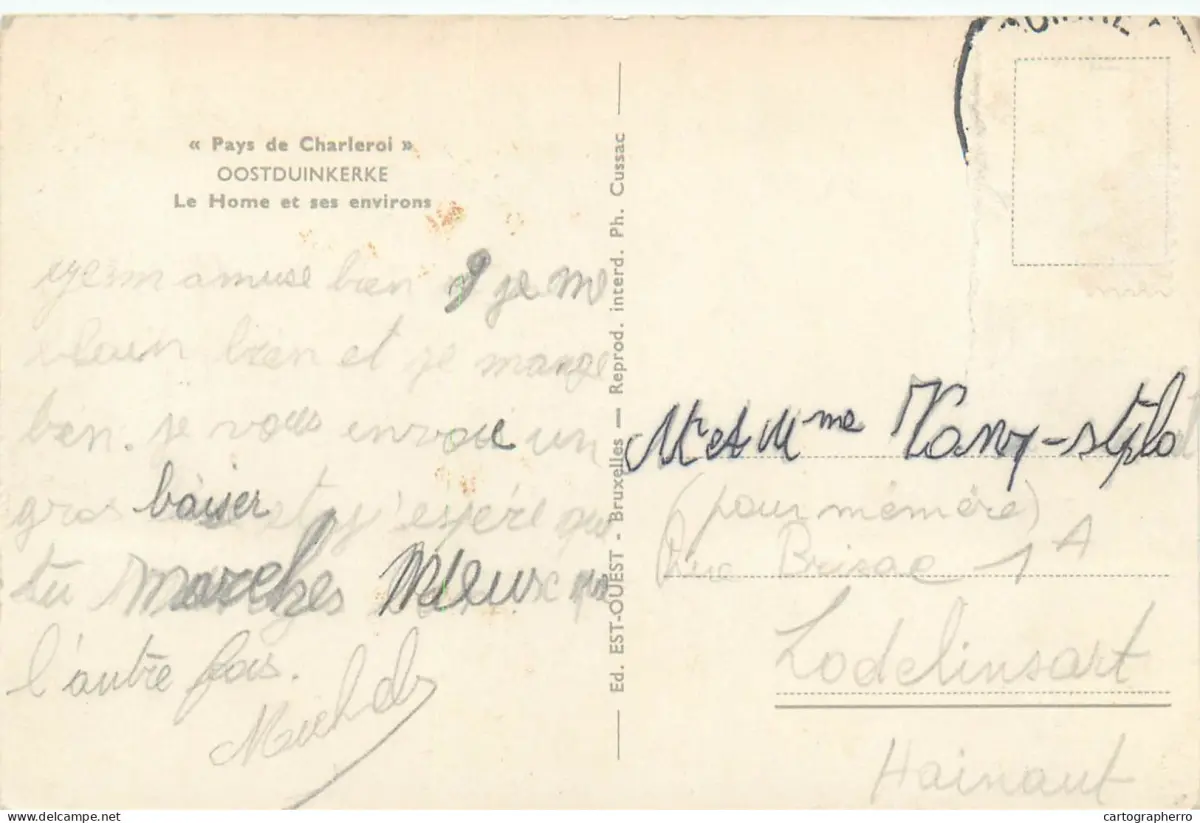 « Pays de Charleroi »
OOSTDUINKERKE
Le Home et ses environs
amuse bien je me
bien et je mange
bien. je vous envoie un
gros baiser et j'espére que
tu marches mieux que
l'autre fois.
Ed. EST-OUEST - Bruxelles — Reprod. interd. Ph. Cussac
Mr et Mme
(pour mémère)
Rue Brisac 1 A
Lodelinsart
Hainaut
cartographerro